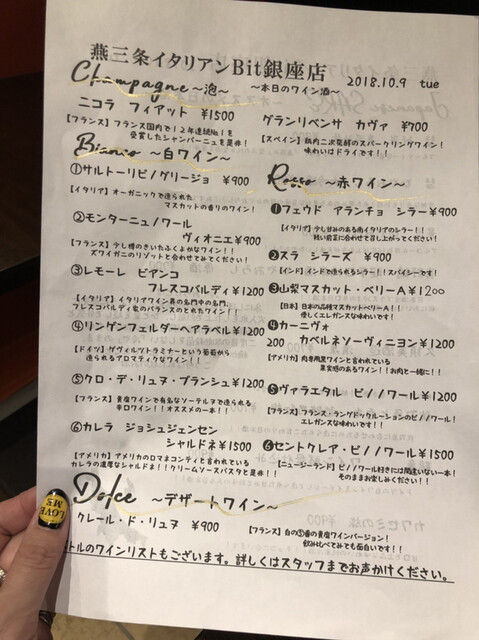 燕三条イタリアンBit銀座店
Champagne ～泡～
～本日のワイン酒～
2018.10.9 tue
ニコラ フィアット ¥1500
【フランス】フランス国内で12年連続No1を
受賞したシャンパーニュを是非！
グランリベンサ カヴァ ¥700
【スペイン】瓶内二次発酵のスパークリングワイン！
味わいはドライです！！
Bianco ～白ワイン～
①サルトーリピノ/グリージョ ¥900
【イタリア】オーガニックで造られた
マスカットの香りのワイン！
②モンターニュ/ワール
ヴィオニエ¥900
【フランス】少し樽のきいたふくよかなワイン！！
ズワイガニのリゾットで合わせてください！
③レモーレ ビアンコ
フレスコバルディ¥1200
【イタリア】イタリアワイン界の名門中の名門、
フレスコバルディ家のバランスのとれたワイン！！
④リンゲンフェルダーヘアラベル¥1200
【ドイツ】ゲヴィルツトラミナーという葡萄から
造られるアロマティックなワイン！！
⑤クロ・デ・リュヌ・ブランシュ¥1200
【フランス】貴腐ワインで有名なソーテルヌで造られる
辛口ワイン！！オススメの一本！！
⑥カレラ ジョシュジェンセン
シャルドネ¥1500
【アメリカ】アメリカのロマネコンティと言われている
カレラの濃厚なシャルドネ！！クリームソースパスタと是非！！
Rosso ～赤ワイン～
❶フェウド アランチョ シラー¥900
【イタリア】少し甘みのある南イタリアのシラー！！
軽い前菜に合わせて召し上がってください！
❷スラ シラーズ ¥900
【インド】インドで造られるシラー！！スパイシーです！
❸山梨マスカット・ベリーA¥1200
【日本】日本の品種マスカットベリーA！！
優しくエレガンスな味わいです！
❹カーニヴォ
カベルネソーヴィニヨン¥1200
【アメリカ】肉専用黒ワインと言われている
果実感のあるワイン！！お肉と一緒に！！
❺ヴァラエタル ピノ/ノワール¥1200
【フランス】フランス・ラングドックルーションのピノ/ノワール！
エレガンスな味わいです！！
❻セントクレア・ピノ/ノワール¥1500
【ニュージーランド】ピノ/ノワール好きには間違いない一本！
そのままお楽しみください！！
Dolce ～デザートワイン～
クレール・ド・リュヌ ¥900
【フランス】白の⑤番の貴腐ワインバージョン！
飲み比べてみても面白いです！！
トルのワインリストもございます。詳しくはスタッフまでお声かけください。
LOVE
ME